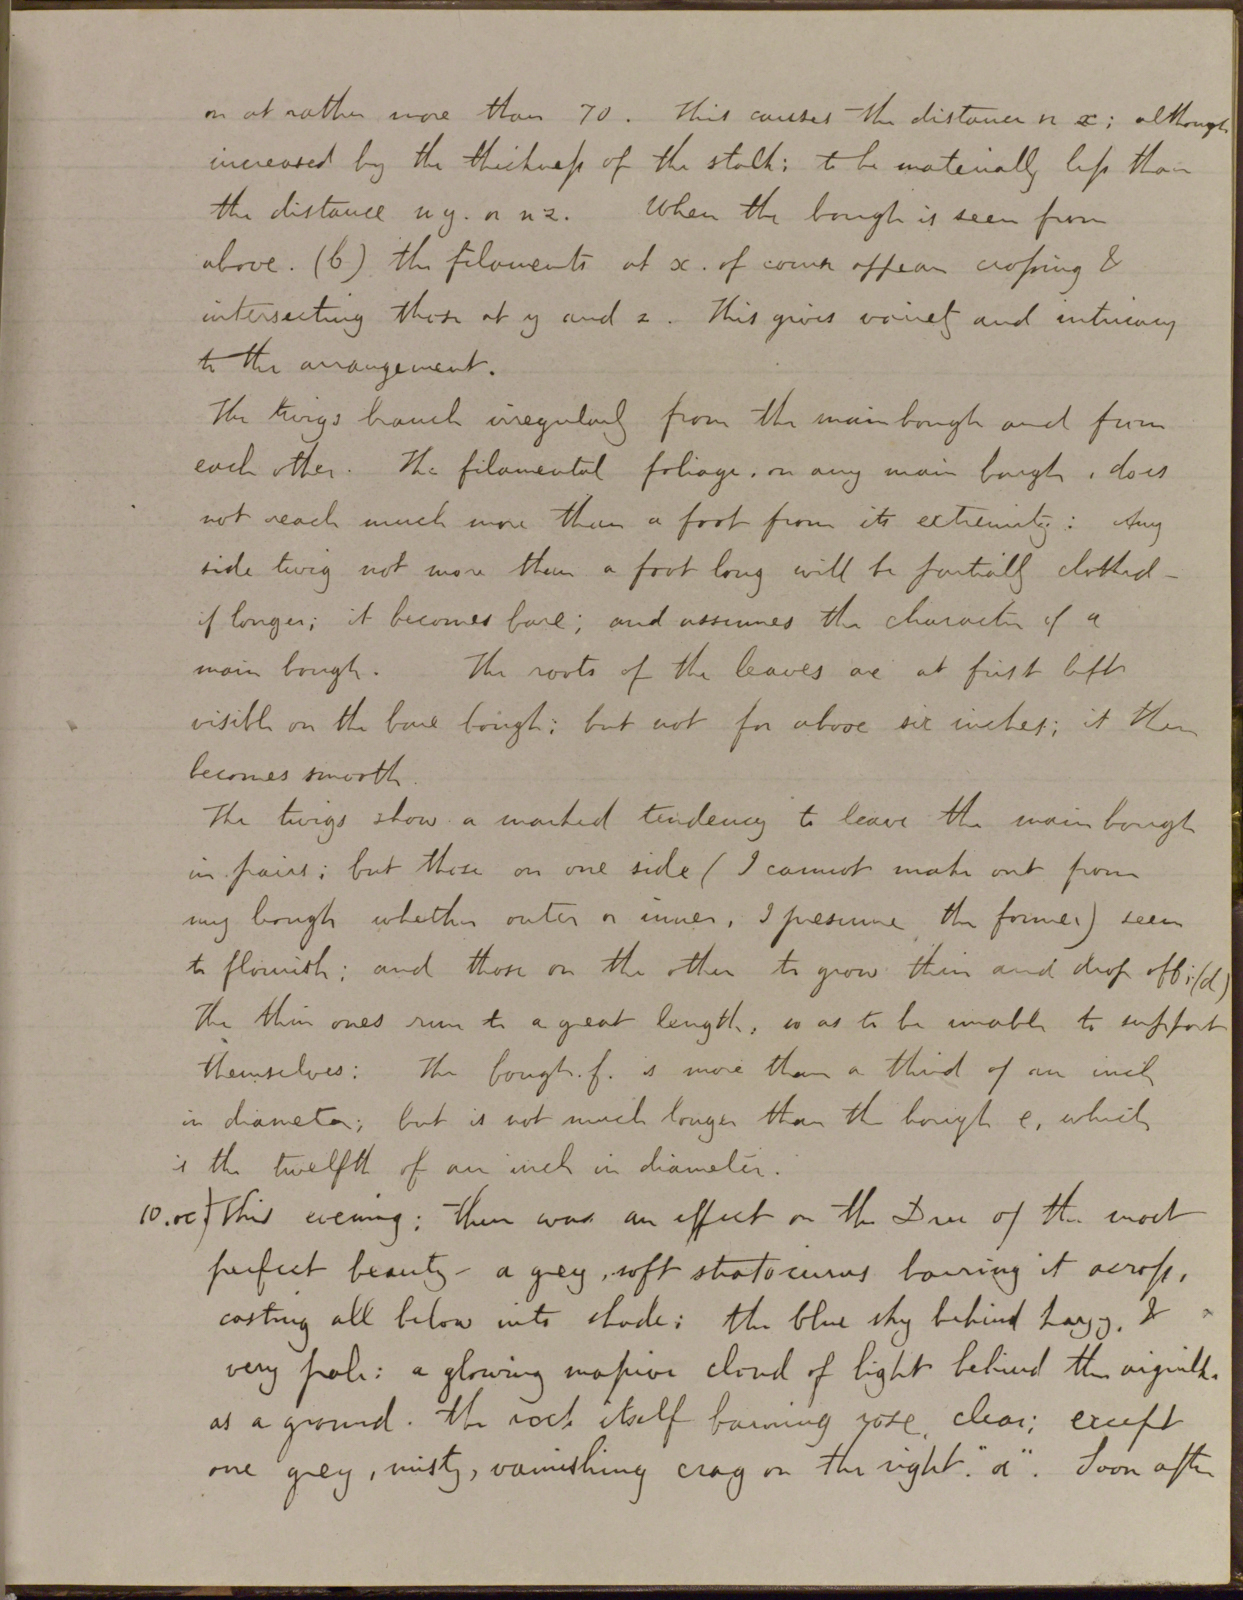 on at rather more than 70. This causes the distance n x; although
increased by the thickness of the stalk: to be materially less than
the distance n y. or n z. When the bough is seen from
above. (b) the filaments at x. of course appear crossing &
intersecting those at y and z. This gives variety and intricacy
to the arrangement.
The twigs branch irregularly from the main bough and from
each other. The filamental foliage, on any main bough, does
not reach much more than a foot from its extremity: Any
side twig not more than a foot long will be partially clothed -
if longer; it becomes bare; and assumes the character of a
main bough. The roots of the leaves are at first left
visible on the bare bough; but not for above six inches; it then
becomes smooth.
The twigs show a marked tendency to leave the main bough
in pairs; but those on one side (I cannot make out from
my bough whether outer or inner, I presume the former) seem
to flourish; and those on the other to grow thin and drop off; (d)
The thin ones run to a great length, so as to be unable to support
themselves: The bough. f. is more than a third of an inch
in diameter; but is not much longer than the bough e, which
is the twelfth of an inch in diameter.
10. oc) This evening; there was an effect on the Dru of the most
perfect beauty - a grey, soft stratocirrus barring it across,
casting all below into shade; the blue sky behind hazy, &
very pale: a glowing massive cloud of light behind the aiguille
as a ground. The rock itself burning rose, clear; except
one grey, misty, vanishing crag on the right. "a". Soon after